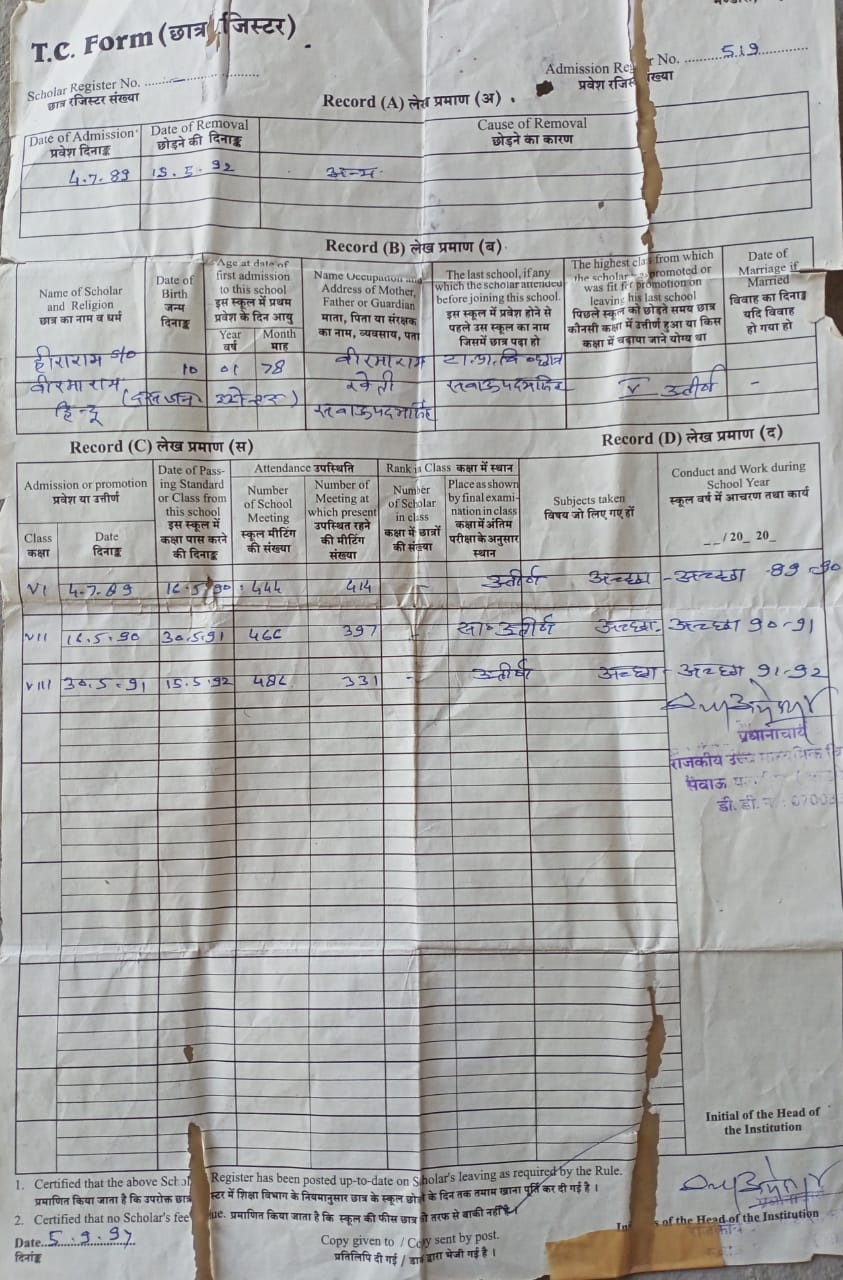 T.C. Form (छात्र रजिस्टर)
Scholar Register No. ......–......
छात्र रजिस्टर संख्या
Admission Register No. ......519......
प्रवेश रजिस्टर संख्या
Record (A) लेख प्रमाण (अ)
Date of Admission
प्रवेश दिनाङ्क
Date of Removal
छोड़ने की दिनाङ्क
Cause of Removal
छोड़ने का कारण
4.7.89 15.5.92 अन्य
Record (B) लेख प्रमाण (ब)
Name of Scholar
and Religion
छात्र का नाम व धर्म
Date of
Birth
जन्म
दिनाङ्क
Age at date of
first admission
to this school
इस स्कूल में प्रथम
प्रवेश के दिन आयु
Year
वर्ष
Month
माह
Name Occupation and
Address of Mother,
Father or Guardian
माता, पिता या संरक्षक
का नाम, व्यवसाय, पता
The last school, if any
which the scholar attended
before joining this school.
इस स्कूल में प्रवेश होने से
पहले उस स्कूल का नाम
जिसमें छात्र पढ़ा हो
The highest class from which
the scholar was promoted or
was fit for promotion on
leaving his last school
पिछले स्कूल को छोड़ते समय छात्र
कौनसी कक्षा में उत्तीर्ण हुआ या किस
कक्षा में चढ़ाया जाने योग्य था
Date of
Marriage if
Married
विवाह का दिनाङ्क
यदि विवाह
हो गया हो
हीराराम S/o 10 01 78 वीरमाराम
वीरमाराम खेती V उत्तीर्ण –
हिन्दू
Record (C) लेख प्रमाण (स)
Record (D) लेख प्रमाण (द)
Admission or promotion
प्रवेश या उत्तीर्ण
Class
कक्षा
Date
दिनाङ्क
Date of Pass-
ing Standard
or Class from
this school
इस स्कूल में
कक्षा पास करने
की दिनाङ्क
Attendance उपस्थिति
Number
of School
Meeting
स्कूल मीटिंग
की संख्या
Number of
Meeting at
which present
उपस्थित रहने
की मीटिंग
संख्या
Rank in Class कक्षा में स्थान
Number
of Scholar
in class
कक्षा में छात्रों
की संख्या
Place as shown
by final exami-
nation in class
कक्षा में अंतिम
परीक्षा के अनुसार
स्थान
Subjects taken
विषय जो लिए गए हों
Conduct and Work during
School Year
स्कूल वर्ष में आचरण तथा कार्य
_ _ / 20_ 20_
VI 4.7.89 16.5.90 444 414 – उत्तीर्ण अच्छा - अच्छा 89-90
VII 16.5.90 30.5.91 466 397 – सा० उत्तीर्ण अच्छा - अच्छा 90-91
VIII 30.5.91 15.5.92 486 331 - उत्तीर्ण अच्छा - अच्छा 91-92
प्रधानाचार्य
राजकीय उच्च माध्यमिक
सेवाऊ
डी. डी.
Initial of the Head of
the Institution
1. Certified that the above Register has been posted up-to-date on Scholar's leaving as required by the Rule.
प्रमाणित किया जाता है कि उपरोक्त छात्र में शिक्षा विभाग के नियमानुसार छात्र के स्कूल छोड़ने के दिन तक तमाम खाना पूर्ति कर दी गई है ।
2. Certified that no Scholar's fee due. प्रमाणित किया जाता है कि स्कूल की फीस छात्र की तरफ से बाकी नहीं है ।
Initials of the Head of the Institution
Date 5.9.97
दिनांक
Copy given to / Copy sent by post.
प्रतिलिपि दी गई / डाक द्वारा भेजी गई है ।